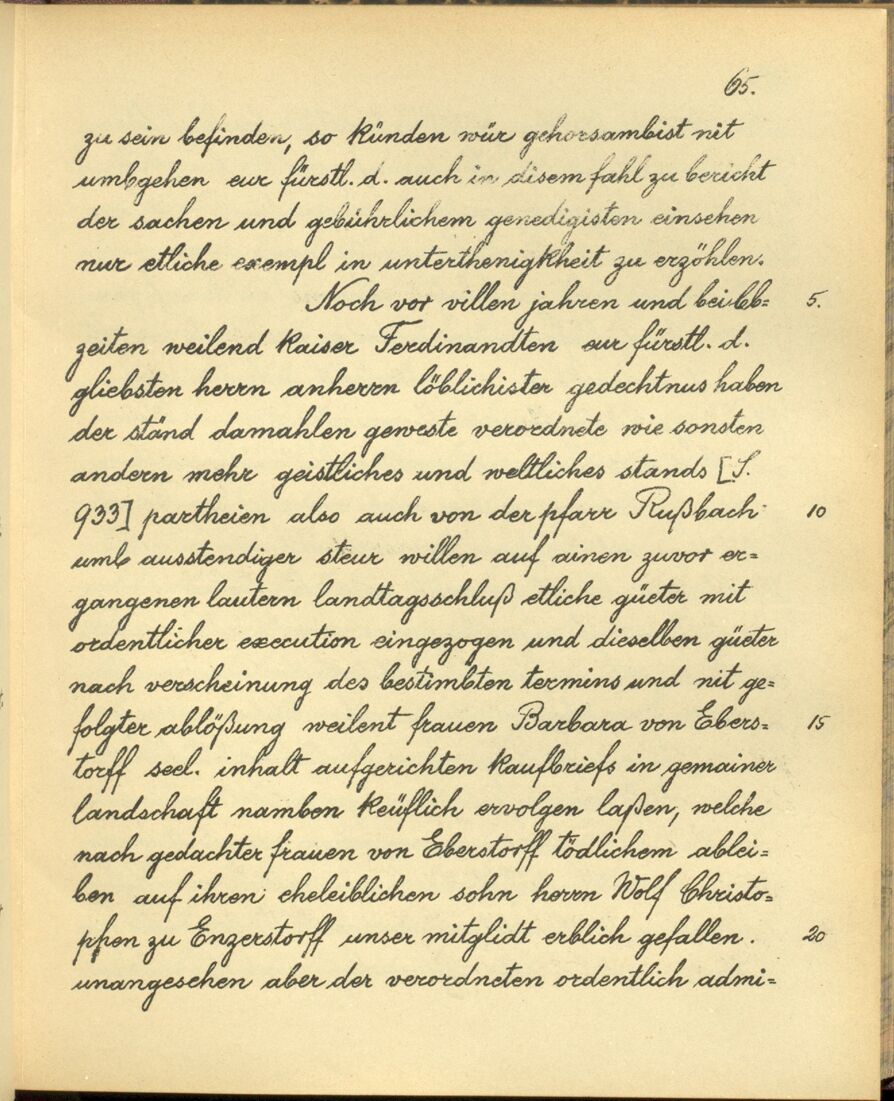 65.
zu sein befinden, so künden wür gehorsambist nit
umbgehen eur fürstl. d. auch in disem fahl zu bericht
der sachen und gebührlichem genedigisten einsehen
nur etliche exempl in unterthenigkheit zu erzöhlen.
Noch vor villen jahren und bei leb= 5.
zeiten weilend kaiser Ferdinandten eur fürstl. d.
gliebsten herrn anherrn löblichister gedechtnus haben
der ständ damahlen geweste verordnete wie sonsten
andern mehr geistliches und weltliches stands [S.
933] partheien also auch von der pfarr Rußbach 10
umb ausstendiger steur willen auf ainen zuvor er=
gangenen lautern landtagsschluß etliche güeter mit
ordentlicher execution eingezogen und dieselben güeter
nach verscheinung des bestimbten termins und nit ge=
folgter ablößung weilent frauen Barbara von Ebers= 15
torff seel. inhalt aufgerichten kaufbriefs in gemainer
landschaft namben keüflich ervolgen laßen, welche
nach gedachter frauen von Eberstorff tödlichem ablei=
ben auf ihren eheleiblichen sohn herrn Wolf Christo=
phen zu Enzerstorff unser mitglidt erblich gefallen. 20
unangesehen aber der verordneten ordentlich admi=